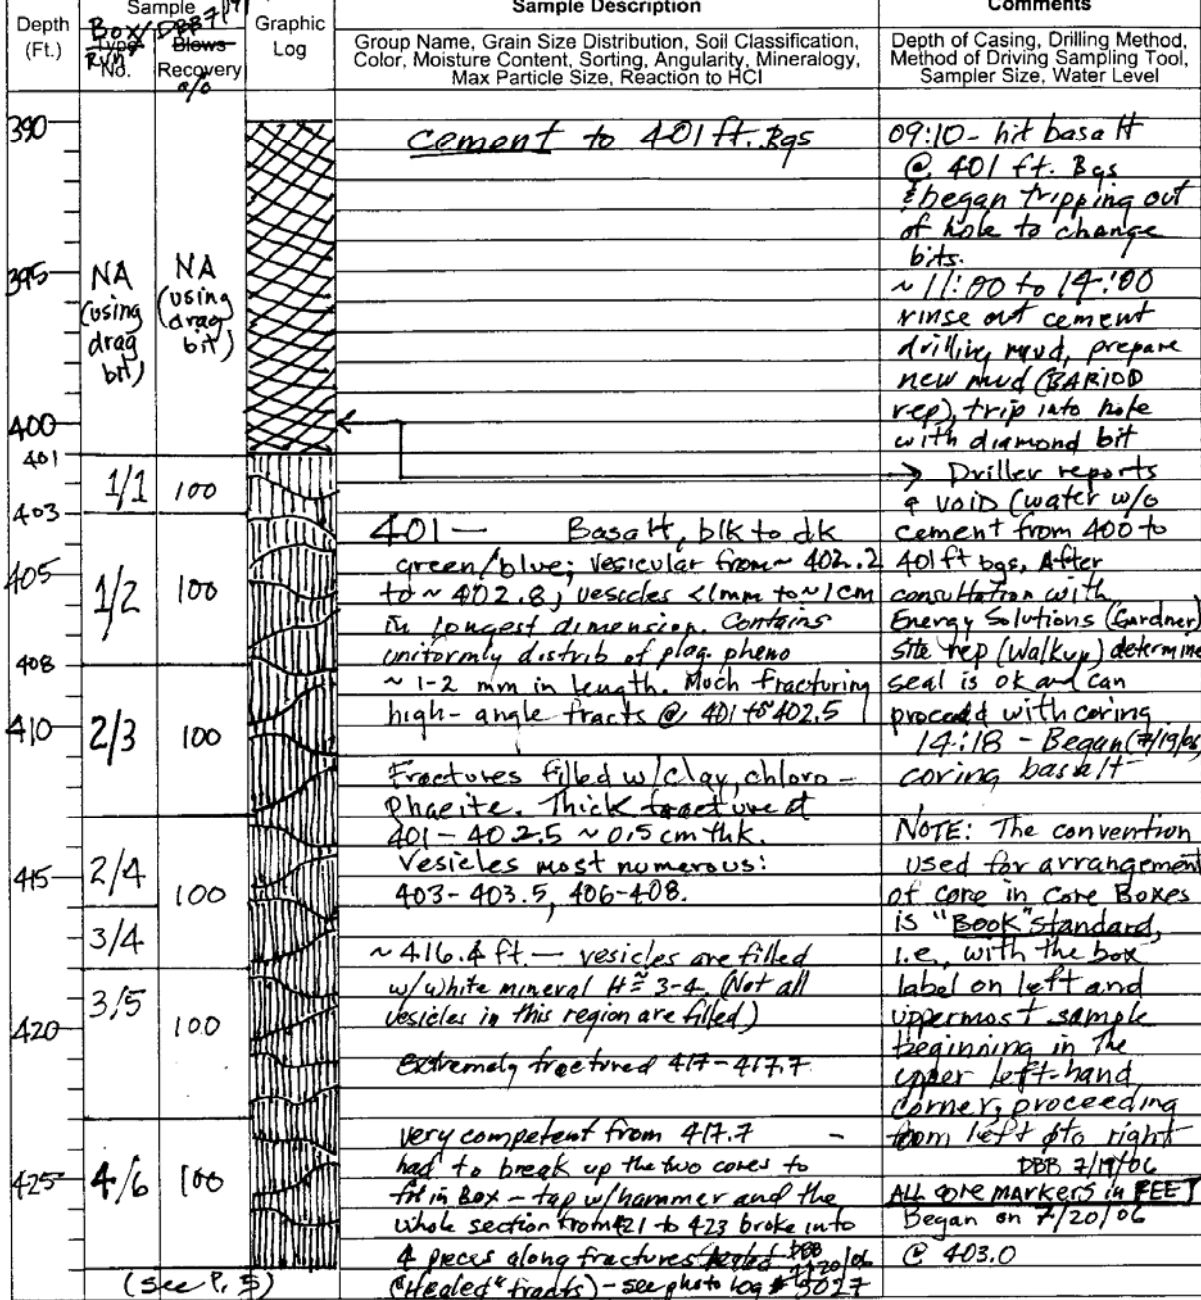 Depth
(Ft.)
Sample
Box/
Type
Run
No.
DBB 7/19
Blows
Recovery
%
Graphic
Log
Sample Description
Group Name, Grain Size Distribution, Soil Classification,
Color, Moisture Content, Sorting, Angularity, Mineralogy,
Max Particle Size, Reaction to HCl
Comments
Depth of Casing, Drilling Method,
Method of Driving Sampling Tool,
Sampler Size, Water Level
390
395
400
401
403
405
408
410
415
420
425
NA
(using
drag
bit)
NA
(using
drag
bit)
1/1 100
1/2 100
2/3 100
2/4 100
3/4
3/5 100
4/6 100
(see P. 5)
cement to 401 ft. Bgs
401 — Basalt, blk to dk
green/blue; vesicular from ~ 402.2
to ~ 402.8; vesicles <1mm to ~1cm
in longest dimension. Contains
uniformly distrib of plag pheno
~ 1-2 mm in length. Much fracturing
high-angle fracts @ 401 to 402.5
Fractures filled w/clay, chloro-
phaeite. Thick fracture at
401 - 402.5 ~ 0.5 cm thk.
Vesicles most numerous:
403-403.5, 406-408.
~ 416.4 ft. — vesicles are filled
w/white mineral H ≅ 3-4. (Not all
vesicles in this region are filled)
Extremely fractured 417-417.7
very competent from 417.7 -
had to break up the two cores to
fit in Box - tap w/hammer and the
whole section from 421 to 423 broke into
4 pieces along fractures healed DBB 7/20/06
("Healed" fracts) - see photo log # 3027
09:10 - hit basalt
@ 401 ft. Bgs
& began tripping out
of hole to change
bits.
~ 11:00 to 14:00
rinse out cement
drilling mud, prepare
new mud (BARIOD
rep), trip into hole
with diamond bit
→ Driller reports
a void (water w/o
cement from 400 to
401 ft bgs. After
consultation with
Energy Solutions (Gardner)
site rep (Walkup) determine
seal is ok and can
proceed with coring
14:18 - Began (7/19/06
coring basalt
NOTE: The convention
used for arrangement
of core in Core Boxes
is "Book" standard,
i.e., with the box
label on left and
uppermost sample
beginning in the
upper left-hand
corner, proceeding
from left to right
DBB 7/19/06
ALL core markers in FEET
Began on 7/20/06
@ 403.0